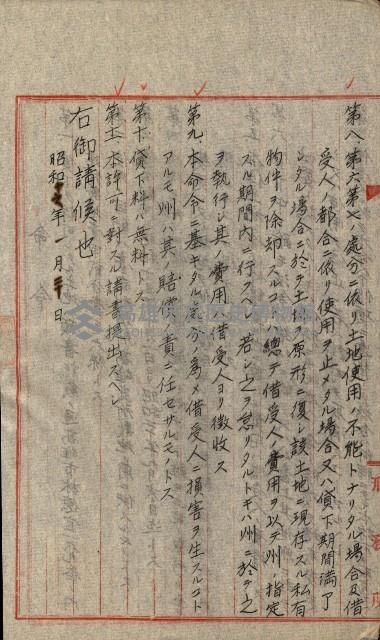 第八、第六第七ノ處分ニ依リ土地使用ノ不能トナリタル場合及借
受人ノ都合ニ依リ使用ヲ止メタル場合又ハ貸下期間滿了
シタル場合ニ於テハ土地ヲ原形ニ復シ該土地ニ現存スル私有
物件ヲ除却スルコトハ總テ借受人ノ費用ヲ以テ州ノ指定
スル期間內ニ行フベシ若シ之ヲ怠リタルトキハ州ニ於テ之
ヲ執行シ其ノ費用ハ借受人ヨリ徵收ス
第九、本命令ニ基キタル處分ノ爲メ借受人ニ損害ヲ生スルコト
アルモ州ハ其ノ賠償ノ責ニ任セサルモノトス
第十、貸下料ハ無料トス
第十一、本許可ニ對スル請書提出スベシ
右御請候也
昭和 年一月 日
高雄市立歷史博物館